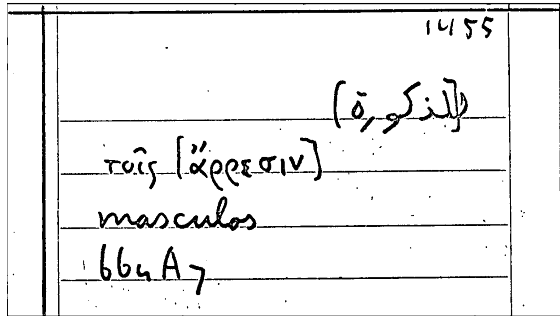 1455
[الذكورة]
τοῖς [ἄρρεσιν]
masculos
664 A 7